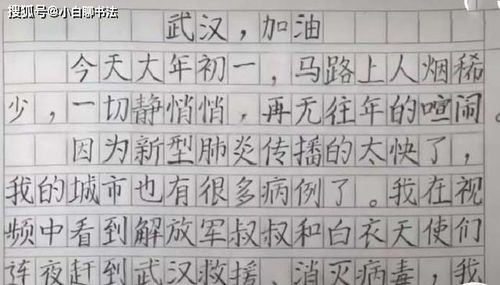 搜狐号@小白聊书法
武汉，加油
今天大年初一，马路上人烟稀
少，一切静悄悄，再无往年的喧闹。
因为新型肺炎传播的太快了，
我的城市也有很多病例了。我在视
频中看到解放军叔叔和白衣天使们
连夜赶到武汉救援、消灭病毒，我